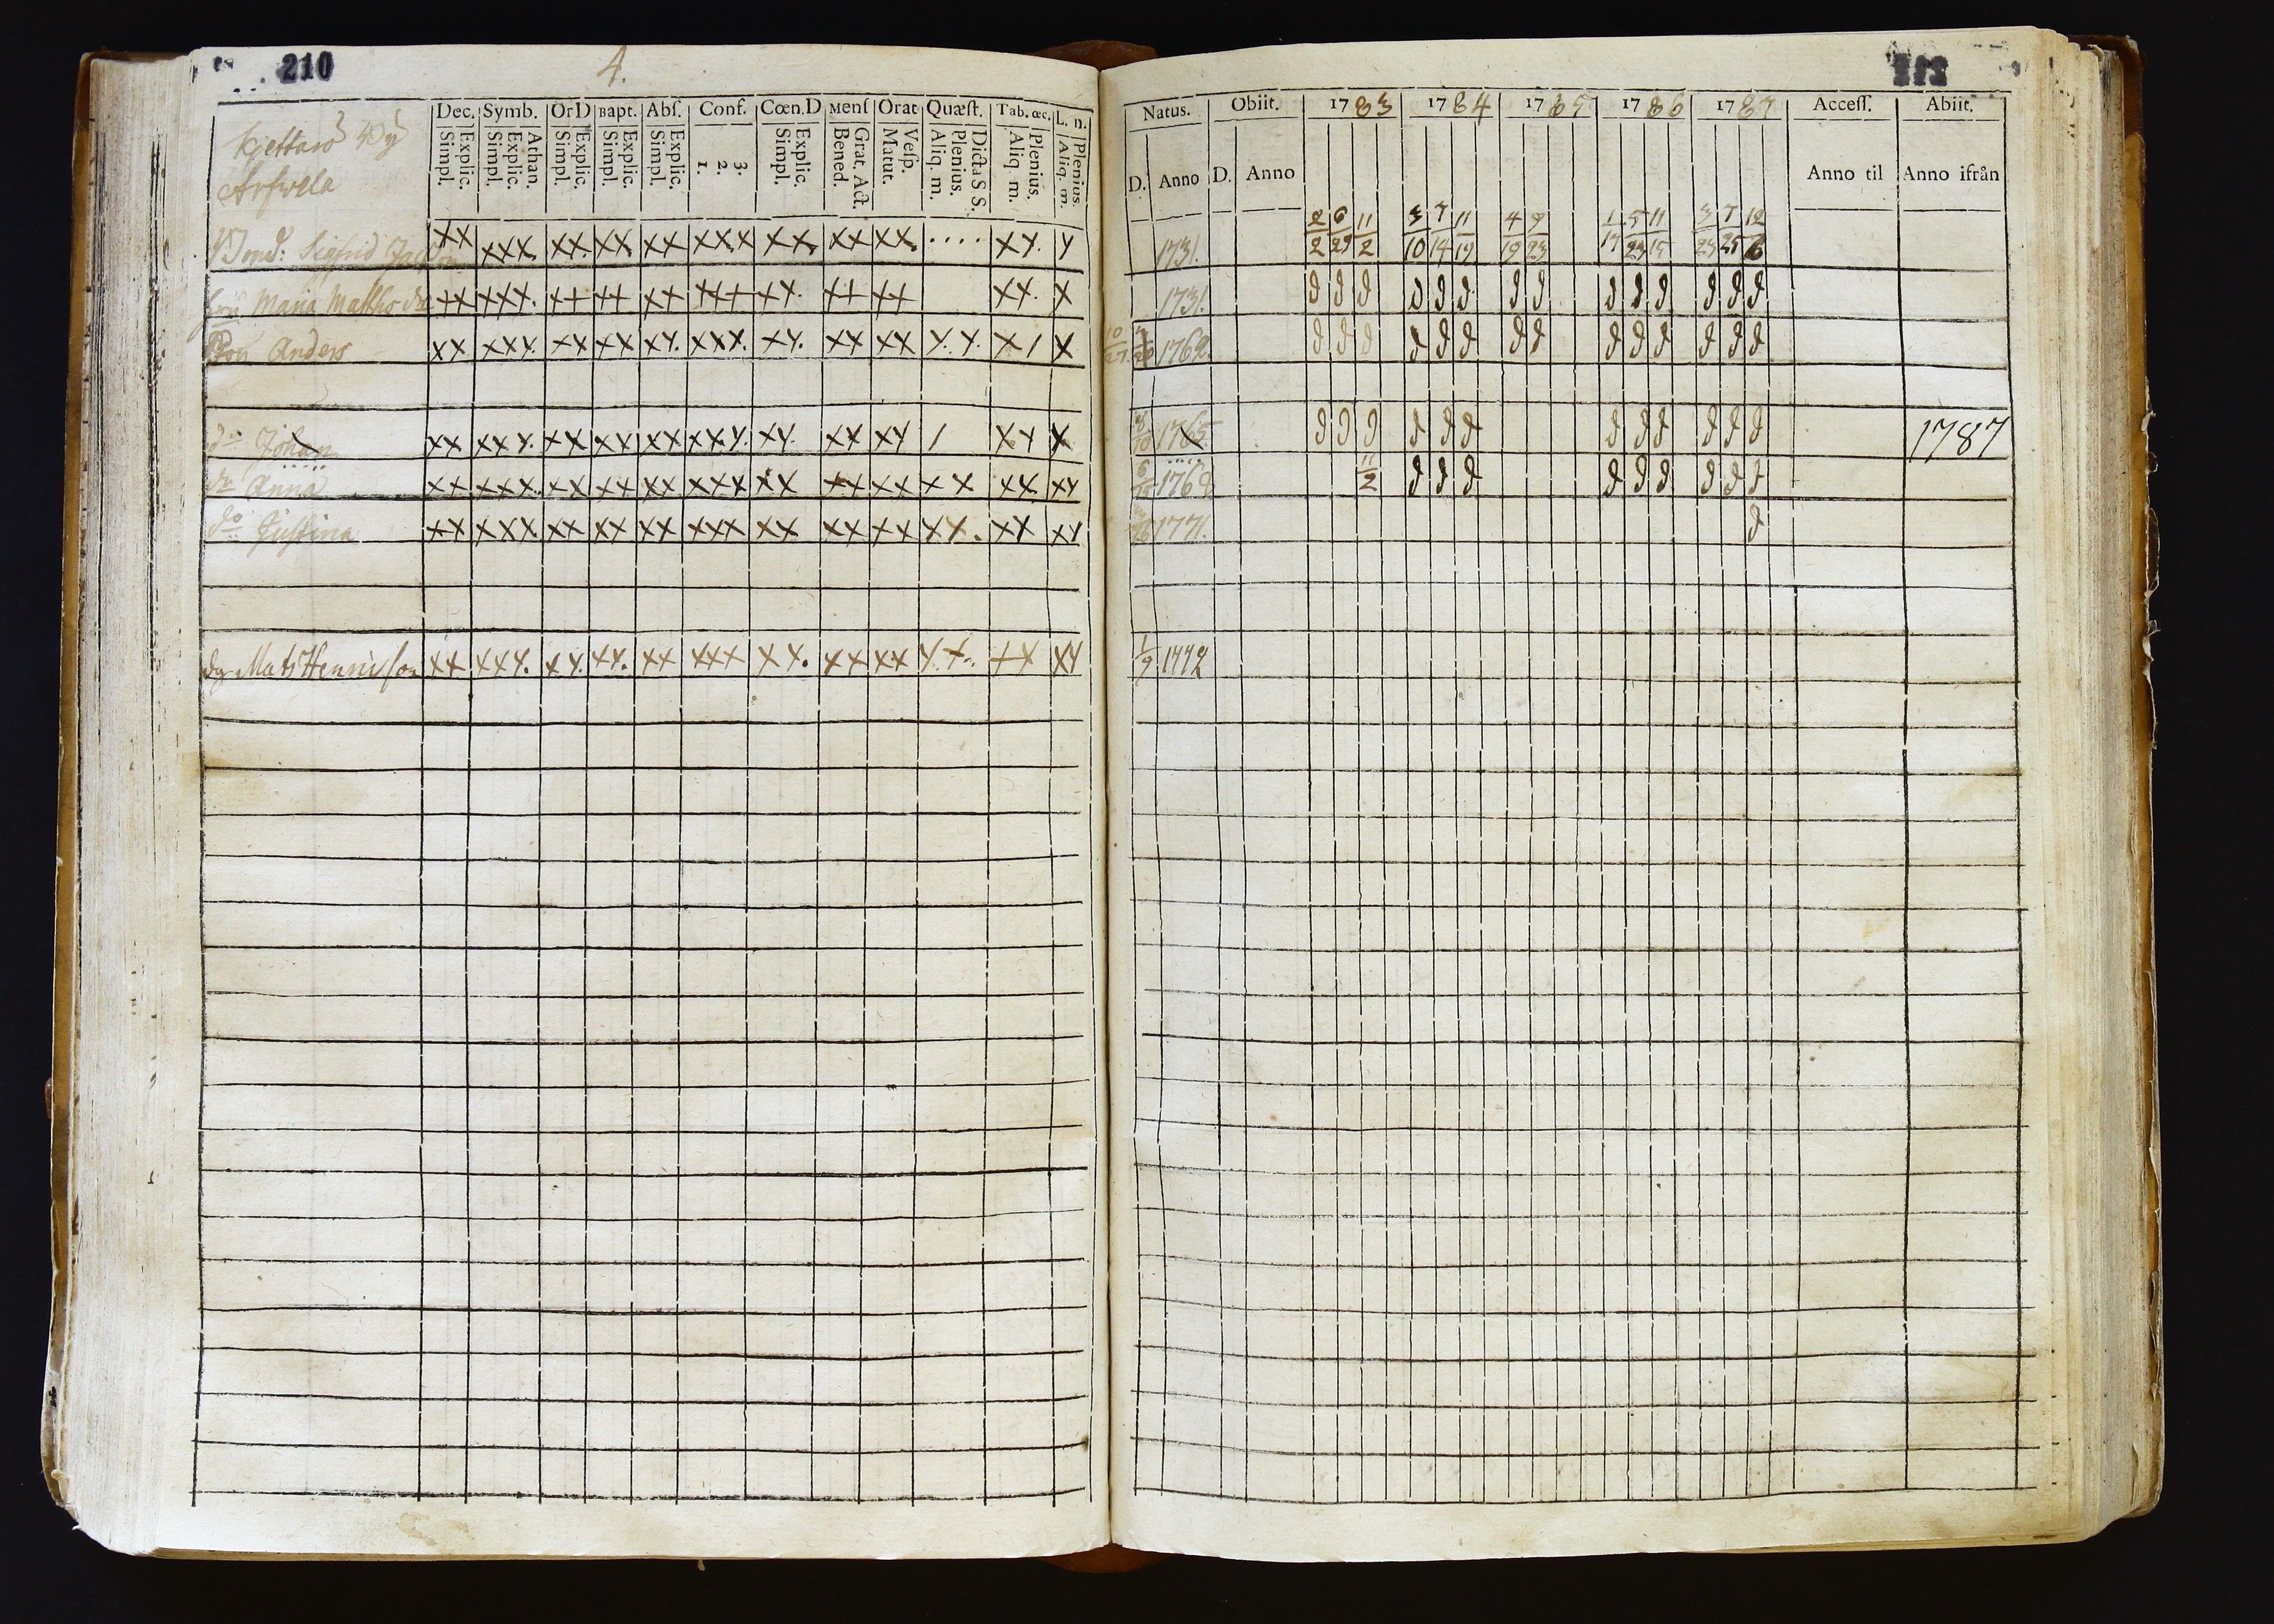 210
4.
Dec. Symb. Or D Bapt. Abſ. Conf. Cœn. D Menſ Orat Quæſt. Tab. œc. L. n.
Explic. Simpl. Athan. Explic. Simpl. Explic. Simpl. Explic. Simpl. Explic. Simpl. 3. 2. 1. Explic. Simpl. Grat. Act. Bened. Veſp. Matut. Dicta S S. Plenius. Aliq. m. Plenius. Aliq. m. Plenius. Aliq. m.
Arfwela
Sigfrid xx xxx xx. xx xx xxx xx xx xx .... xx. x
Maria Matths dr xx xxx. xx xx xx xxx xx. xx xx xx. x
Son Anders xx xxx xx xx xx. xxx. xx. xx xx x.x. x / x
do Johan xx xxx. xx xx xx xxx. xx. xx xx / xx x
do Anna xx xxx xx xx xx xxx xx xx xx xx xx xx
do Justina xx xxx xx xx xx xxx xx xx xx xx. xx xx
Mats Hennisson xx xxx. xx. xx. xx xxx xx. xx xx x.x. xx xx
Natus. Obiit. 1783 1784 1785 1786 1787 Acceſſ. Abiit.
D. Anno D. Anno Anno til Anno ifrån
1731. 2/2 6/29 11/2 3/10 7/14 11/19 4/19 9/23 1/17 5/23 11/15 3/23 7/25 12/6
1731.
1762.
1765. 1787
1768 11/2
1771.
1/9 1772